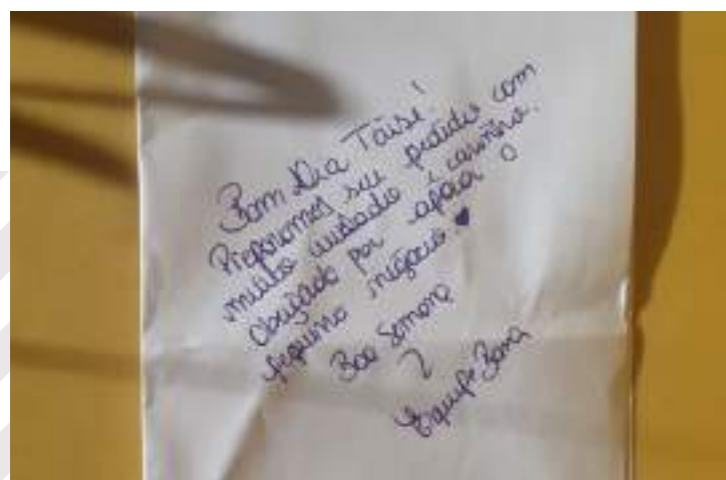 Bom Dia Taise!
Preparamos seu pedido com
muito cuidado e carinho.
Obrigado por apoiar o
pequeno negócio. ♥
Boa Semana
Equipe